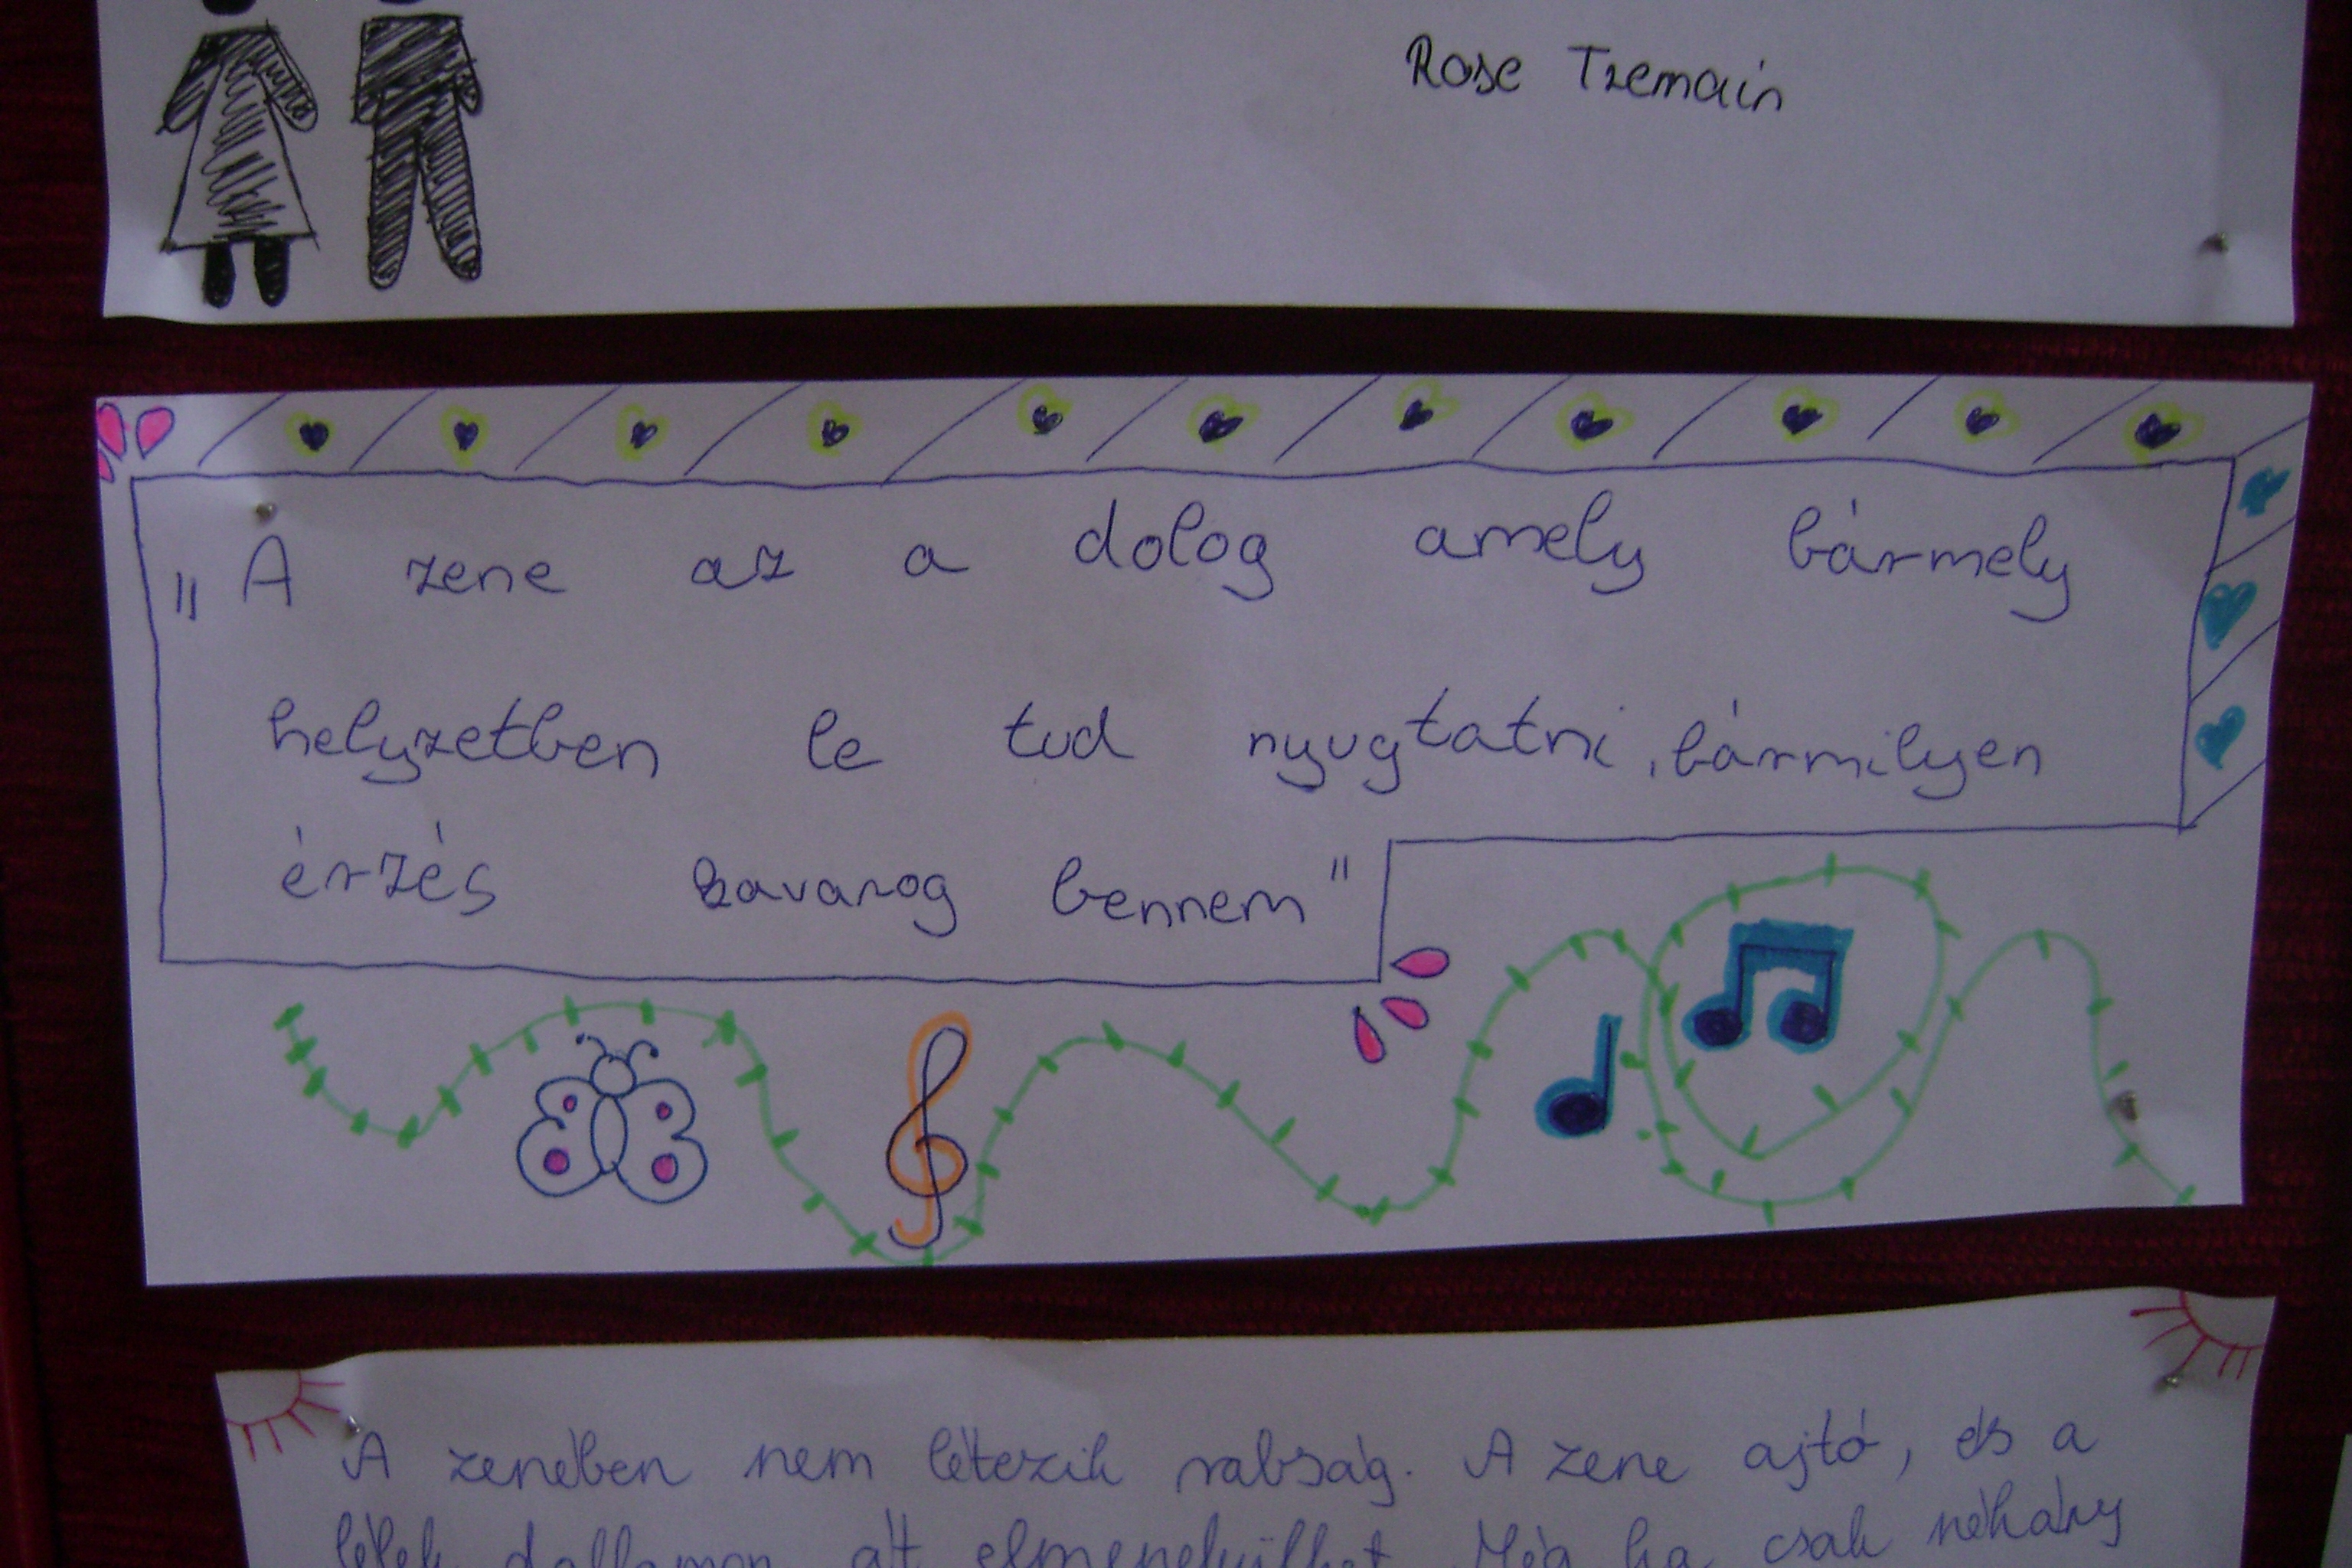 Rose Tremain
„A zene az a dolog amely bármely
helyzetben le tud nyugtatni, bármilyen
érzés kavarog bennem"
A zenében nem létezik rabság. A zene ajtó, és a
lélek dallamon át elmenekülhet. Még ha csak néhány